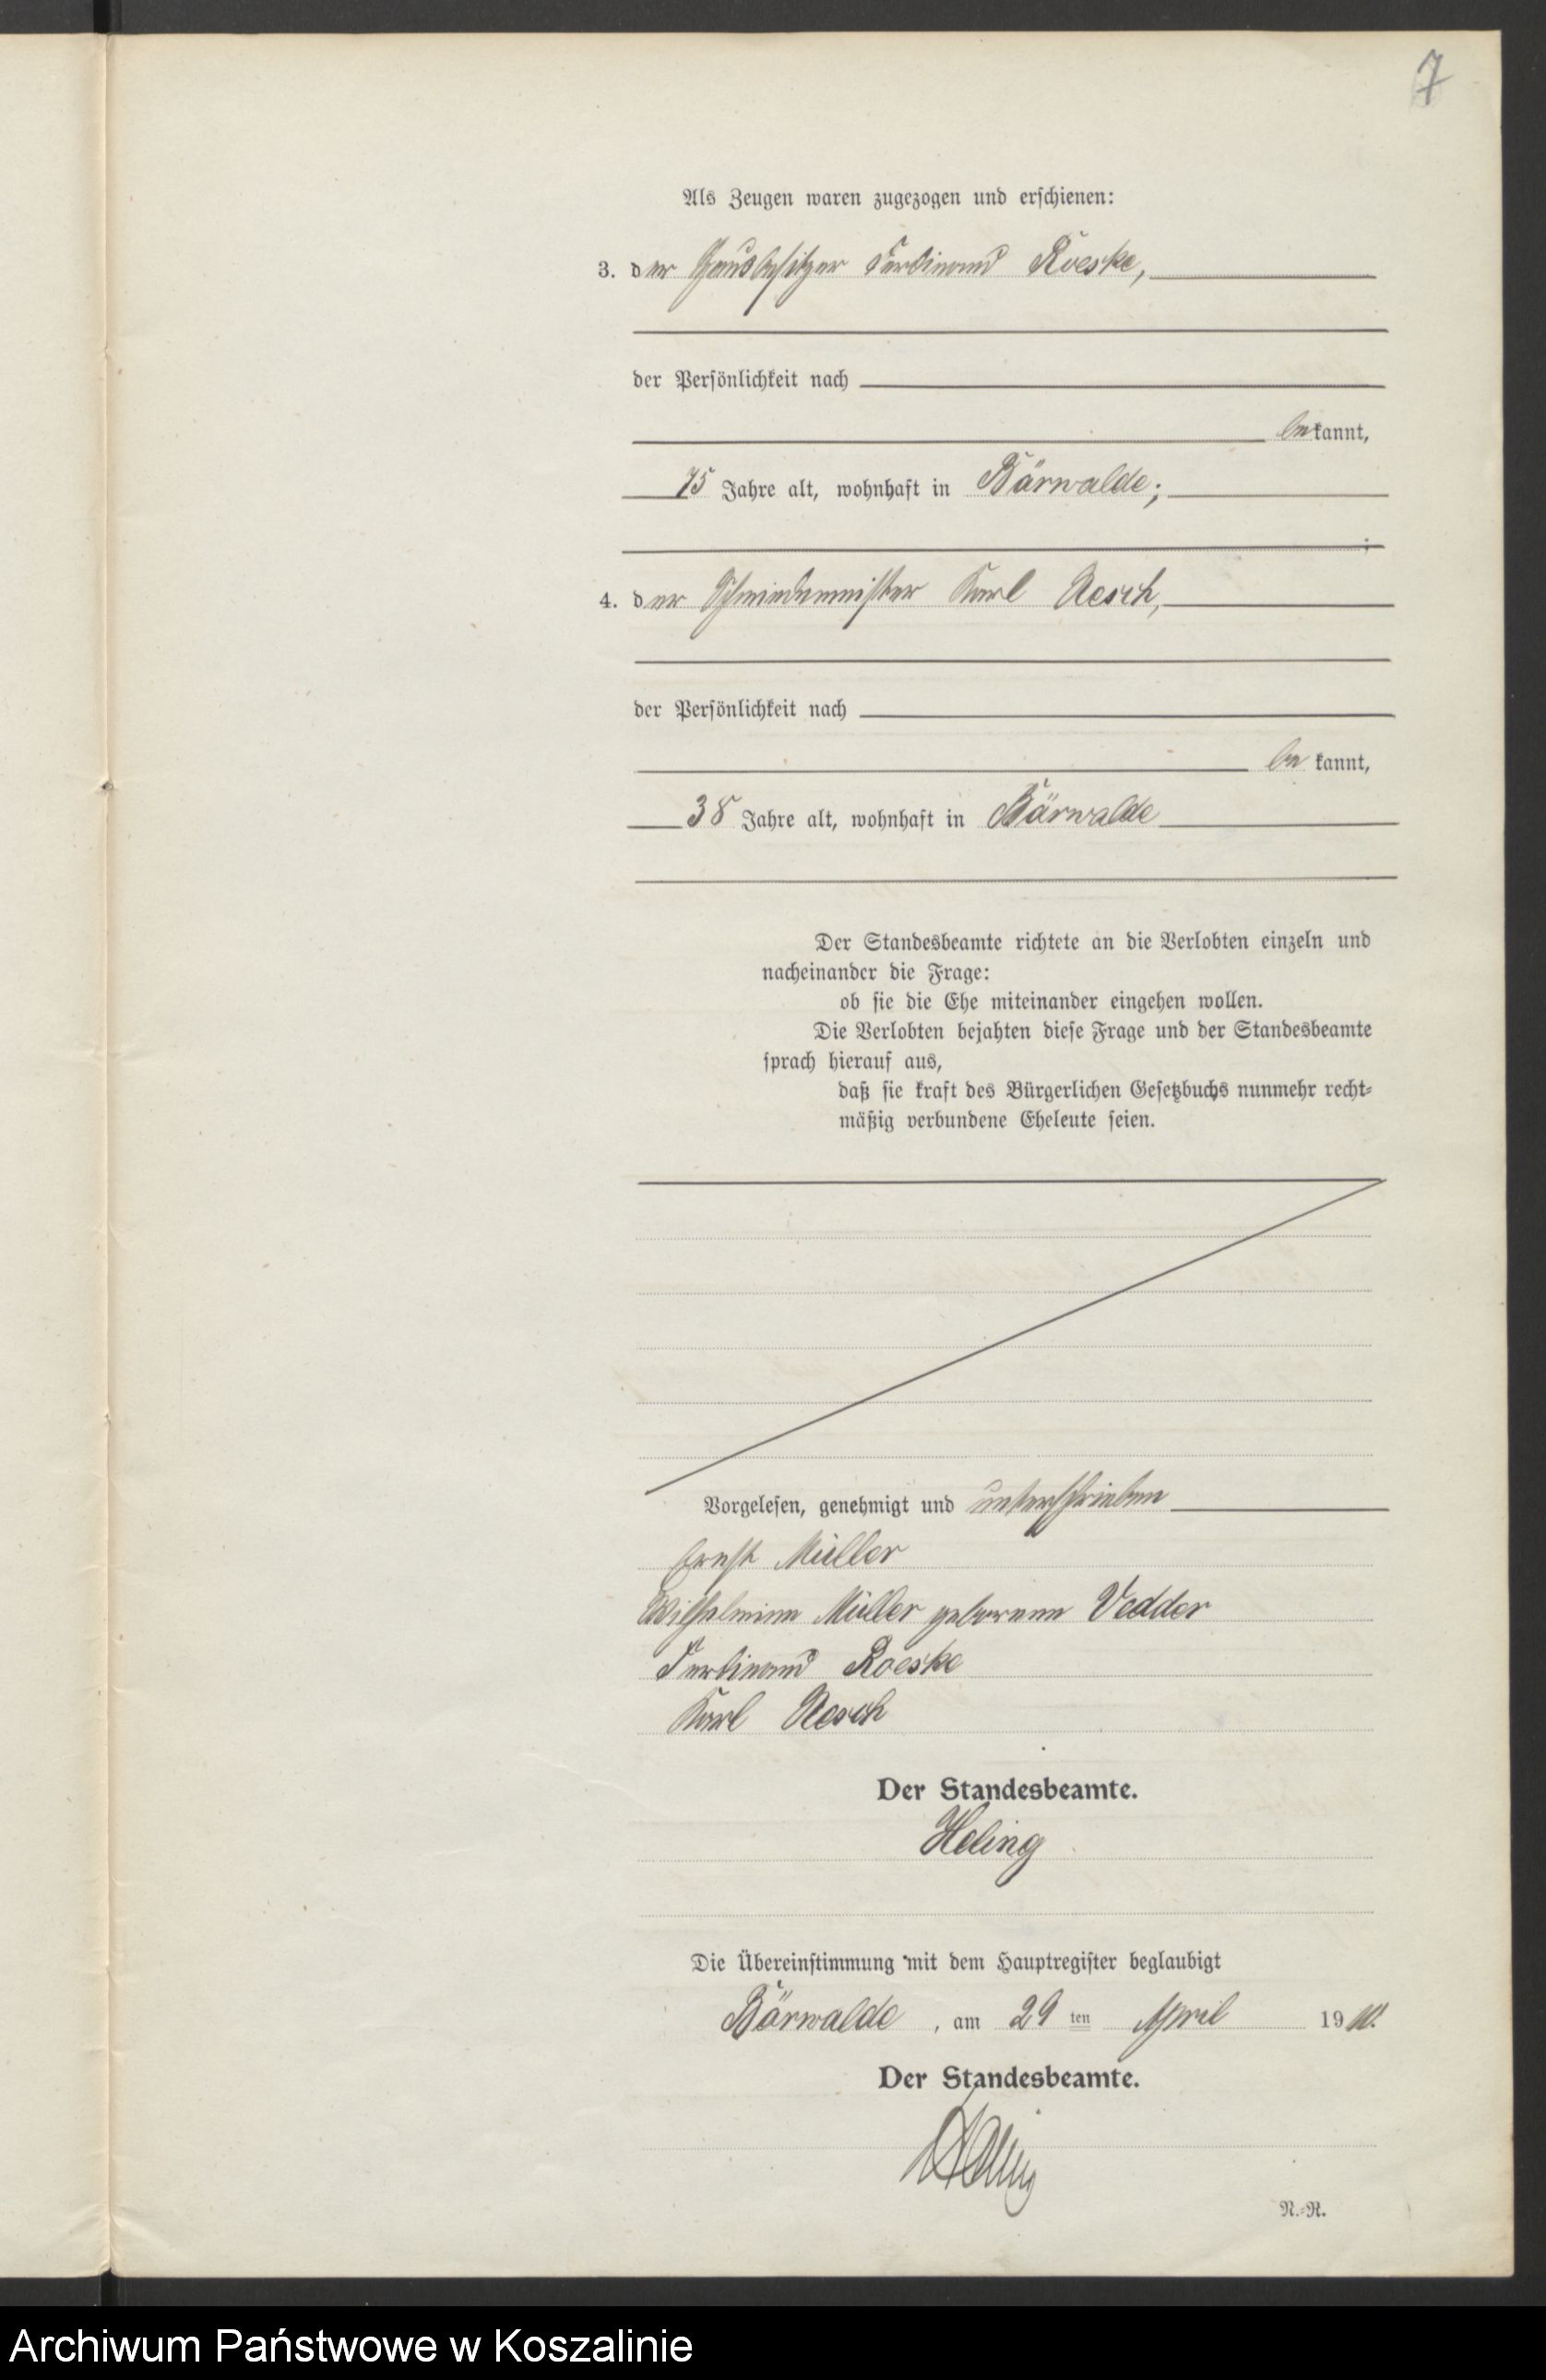 7
Als Zeugen waren zugezogen und erschienen:
3. der Hausbesitzer Ferdinand Roeske,
der Persönlichkeit nach
bekannt,
75 Jahre alt, wohnhaft in Bärwalde;
;
4. der Schmiedemeister Karl Resch,
der Persönlichkeit nach
be kannt,
38 Jahre alt, wohnhaft in Bärwalde
Der Standesbeamte richtete an die Verlobten einzeln und
nacheinander die Frage:
ob sie die Ehe miteinander eingehen wollen.
Die Verlobten bejahten diese Frage und der Standesbeamte
sprach hierauf aus,
daß sie kraft des Bürgerlichen Gesetzbuchs nunmehr recht-
mäßig verbundene Eheleute seien.
Vorgelesen, genehmigt und unterschrieben
Ernst Müller
Wilhelmine Müller geborene Vedder
Ferdinand Roeske
Karl Resch
Der Standesbeamte.
Heling
Die Übereinstimmung mit dem Hauptregister beglaubigt
Bärwalde, am 29 ten April 1910.
Der Standesbeamte.
Heling
N.-R.
Archiwum Państwowe w Koszalinie